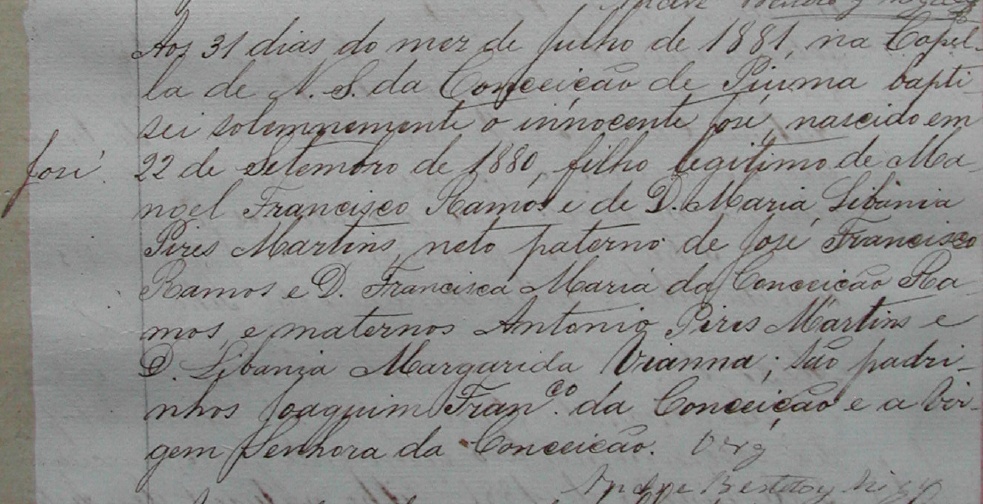 Aos 31 dias do mez de Julho de 1881, na Capel-
la de N. S. da Conceição de Piuma bapti-
sei solemnemente o innocente José, nascido em
José.
22 de Setembro de 1880, filho legitimo de Ma-
noel Francisco Ramos e de D. Maria Libania
Pires Martins, neto paterno de José Francisco
Ramos e D. Francisca Maria da Conceição Ra-
mos e maternos Antonio Pires Martins e
D. Libania Margarida Vianna; são padri-
nhos Joaquim Fran.co da Conceição e a Vir-
gem Senhora da Conceição.